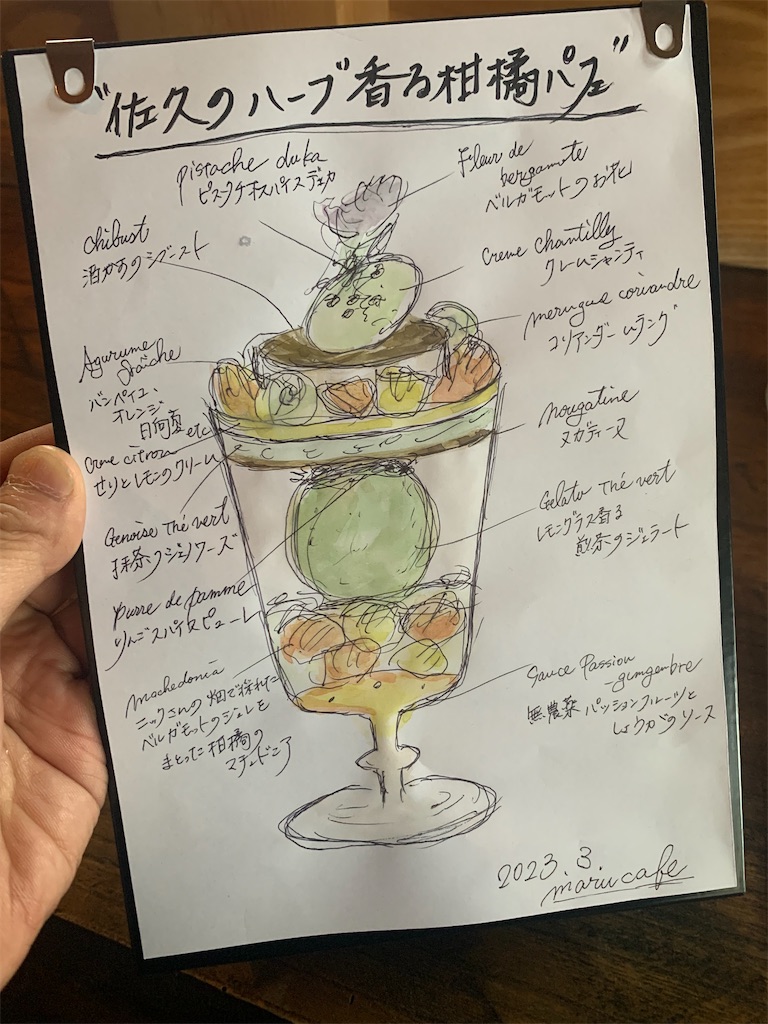 "佐久のハーブ香る柑橘パフェ"
pistache duka
ピスタチオスパイスデュカ
Fleur de
bergamote
ベルガモットのお花
chibust
酒かすのシブースト
creme chantilly
クレームシャンティ
merngue coriandre
コリアンダームラング
Agurume
fraiche
バンペイユ、
オレンジ
日向夏 etc
nougatine
ヌガティーヌ
creme citron
せりとレモンのクリーム
Genoise thé vert
抹茶のジェノワーズ
Gelato Thé vert
レモングラス香る
煎茶のジェラート
purre de pamme
りんごスパイスピューレ
machedonia
ニックさんの畑で採れた
ベルガモットのジュレを
まとった柑橘の
マチェドニア
Sauce Passion
-gimgembre
無農薬 パッションフルーツと
しょうがのソース
2023.3.
maru cafe